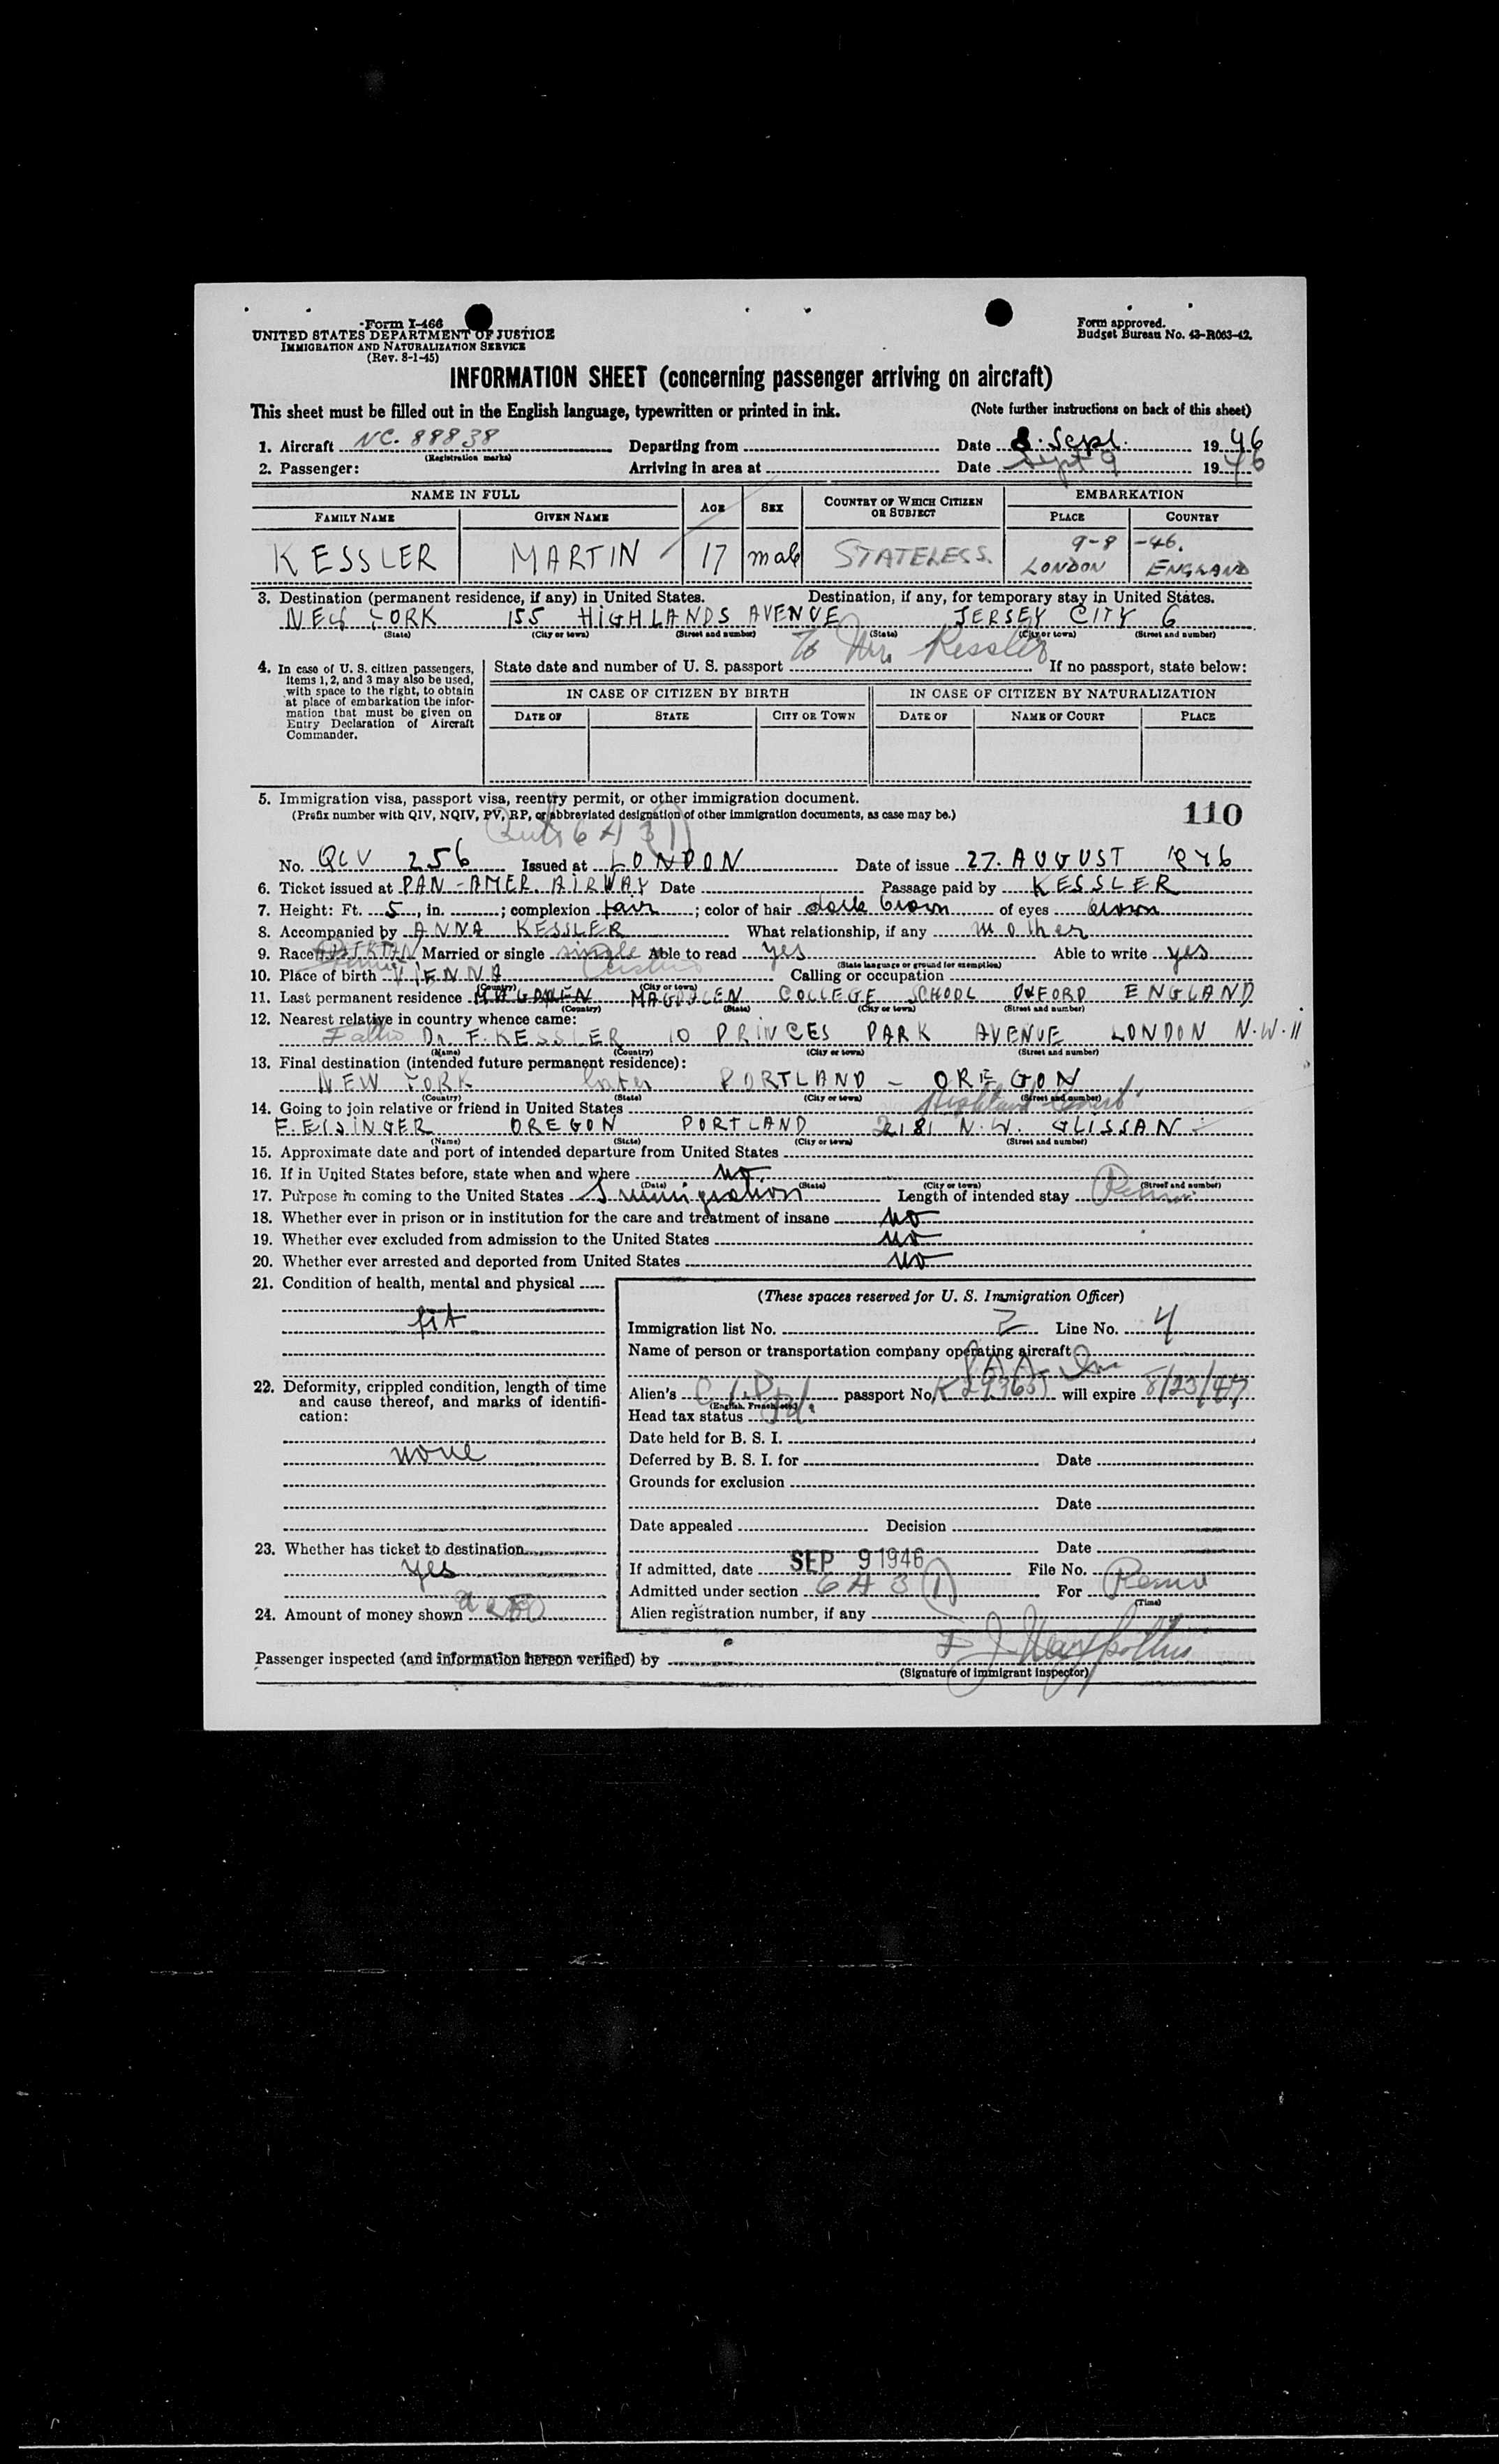 Form I-466
UNITED STATES DEPARTMENT OF JUSTICE
IMMIGRATION AND NATURALIZATION SERVICE
(Rev. 8-1-45)
Form approved.
Budget Bureau No. 43-R063-42.
INFORMATION SHEET (concerning passenger arriving on aircraft)
This sheet must be filled out in the English language, typewritten or printed in ink. (Note further instructions on back of this sheet)
1. Aircraft NC. 88838 Departing from Date 8. Sept. 1946
(Registration marks)
2. Passenger: Arriving in area at Date Sept 9 1946
NAME IN FULL AGE SEX COUNTRY OF WHICH CITIZEN OR SUBJECT EMBARKATION
FAMILY NAME GIVEN NAME PLACE COUNTRY
9-8 -46.
KESSLER MARTIN 17 male STATELESS. LONDON ENGLAND
3. Destination (permanent residence, if any) in United States. Destination, if any, for temporary stay in United States.
NEW YORK 155 HIGHLANDS AVENUE JERSEY CITY 6
(State) (City or town) (Street and number) (State) (City or town) (Street and number)
To Mrs. Kessler
4. In case of U. S. citizen passengers, items 1, 2, and 3 may also be used, with space to the right, to obtain at place of embarkation the information that must be given on Entry Declaration of Aircraft Commander.
State date and number of U. S. passport If no passport, state below:
IN CASE OF CITIZEN BY BIRTH IN CASE OF CITIZEN BY NATURALIZATION
DATE OF STATE CITY OR TOWN DATE OF NAME OF COURT PLACE
5. Immigration visa, passport visa, reentry permit, or other immigration document.
(Prefix number with QIV, NQIV, PV, RP, or abbreviated designation of other immigration documents, as case may be.)
110
6 A 3 (1)
No. QIV 256 Issued at LONDON Date of issue 27. AUGUST 1946
6. Ticket issued at PAN-AMER. AIRWAY Date Passage paid by KESSLER
7. Height: Ft. 5, in. ; complexion fair ; color of hair dark brown of eyes brown
8. Accompanied by ANNA KESSLER What relationship, if any mother
9. Race Married or single single Able to read yes Able to write yes
(State language or ground for exemption)
10. Place of birth VIENNA Calling or occupation
(Country) (City or town)
11. Last permanent residence MAGDALEN COLLEGE SCHOOL OXFORD ENGLAND
(Country) (State) (City or town) (Street and number)
12. Nearest relative in country whence came:
Father Dr. F. KESSLER 10 PRINCES PARK AVENUE LONDON N.W.11
(Name) (Country) (City or town) (Street and number)
13. Final destination (intended future permanent residence):
NEW YORK later PORTLAND - OREGON
(Country) (State) (City or town) (Street and number)
14. Going to join relative or friend in United States Highland Court
F. EISINGER OREGON PORTLAND 2181 N.W. GLISSAN
(Name) (State) (City or town) (Street and number)
15. Approximate date and port of intended departure from United States
16. If in United States before, state when and where no
(Date) (State) (City or town) (Street and number)
17. Purpose in coming to the United States Immigration Length of intended stay Perm.
18. Whether ever in prison or in institution for the care and treatment of insane no
19. Whether ever excluded from admission to the United States no
20. Whether ever arrested and deported from United States no
21. Condition of health, mental and physical
fit
22. Deformity, crippled condition, length of time and cause thereof, and marks of identification:
none
23. Whether has ticket to destination
yes
24. Amount of money shown
(These spaces reserved for U. S. Immigration Officer)
Immigration list No. 2 Line No. 4
Name of person or transportation company operating aircraft
PAA
Alien's passport No. will expire 8/23/47
(English, French, etc.)
Head tax status
Date held for B. S. I.
Deferred by B. S. I. for Date
Grounds for exclusion
Date
Date appealed Decision
Date
If admitted, date SEP 9 1946 File No.
Admitted under section 6 A 3 (1) For Perm
(Time)
Alien registration number, if any
Passenger inspected (and information hereon verified) by
(Signature of immigrant inspector)